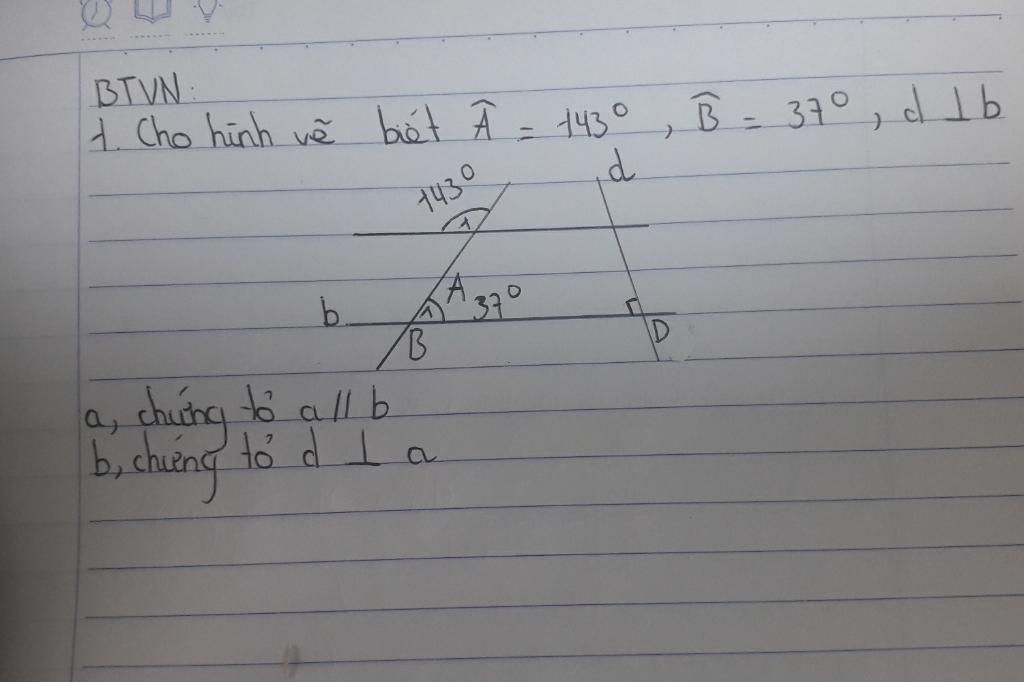 BTVN:
1. Cho hình vẽ biết Â = 143°, B̂ = 37°, d ⊥ b
143°
d
1
A
37°
b
1
B
D
a, chứng tỏ a // b
b, chứng tỏ d ⊥ a